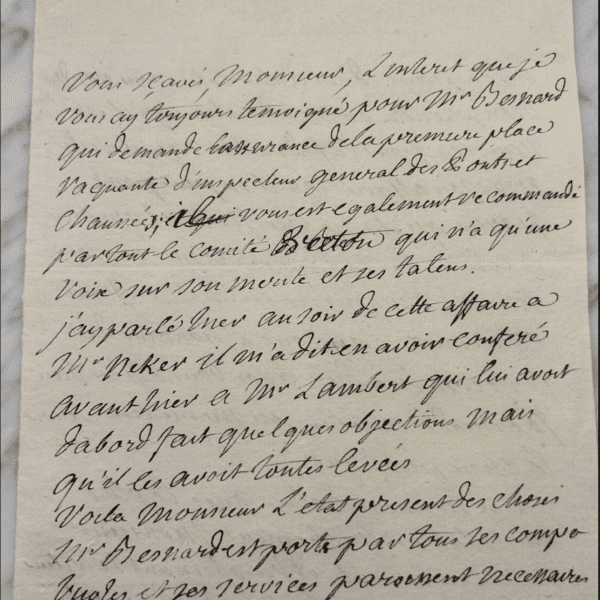 Vous sçavés, Monsieur, L'interet que je
vous ay toujours temoigné pour Mr Besnard
qui demande l'assurance de la premiere place
vaquante d'inspecteur general des Ponts et
Chaussées, il vous est egalement recommandé
par tout le comité qui n'a qu'une
voix sur son merite et ses talens.
j'ay parlé hier au soir de cette affaire a
Mr Neker il m'a dit en avoir conferé
avant hier a Mr Lambert qui lui avoit
dabord fait quelques objections mais
qu'il les avoit toutes levées
Voila Monsieur L'etat present des choses
Mr Besnard est porté par tous ses compa
triotes et ses services paroissent necessaires